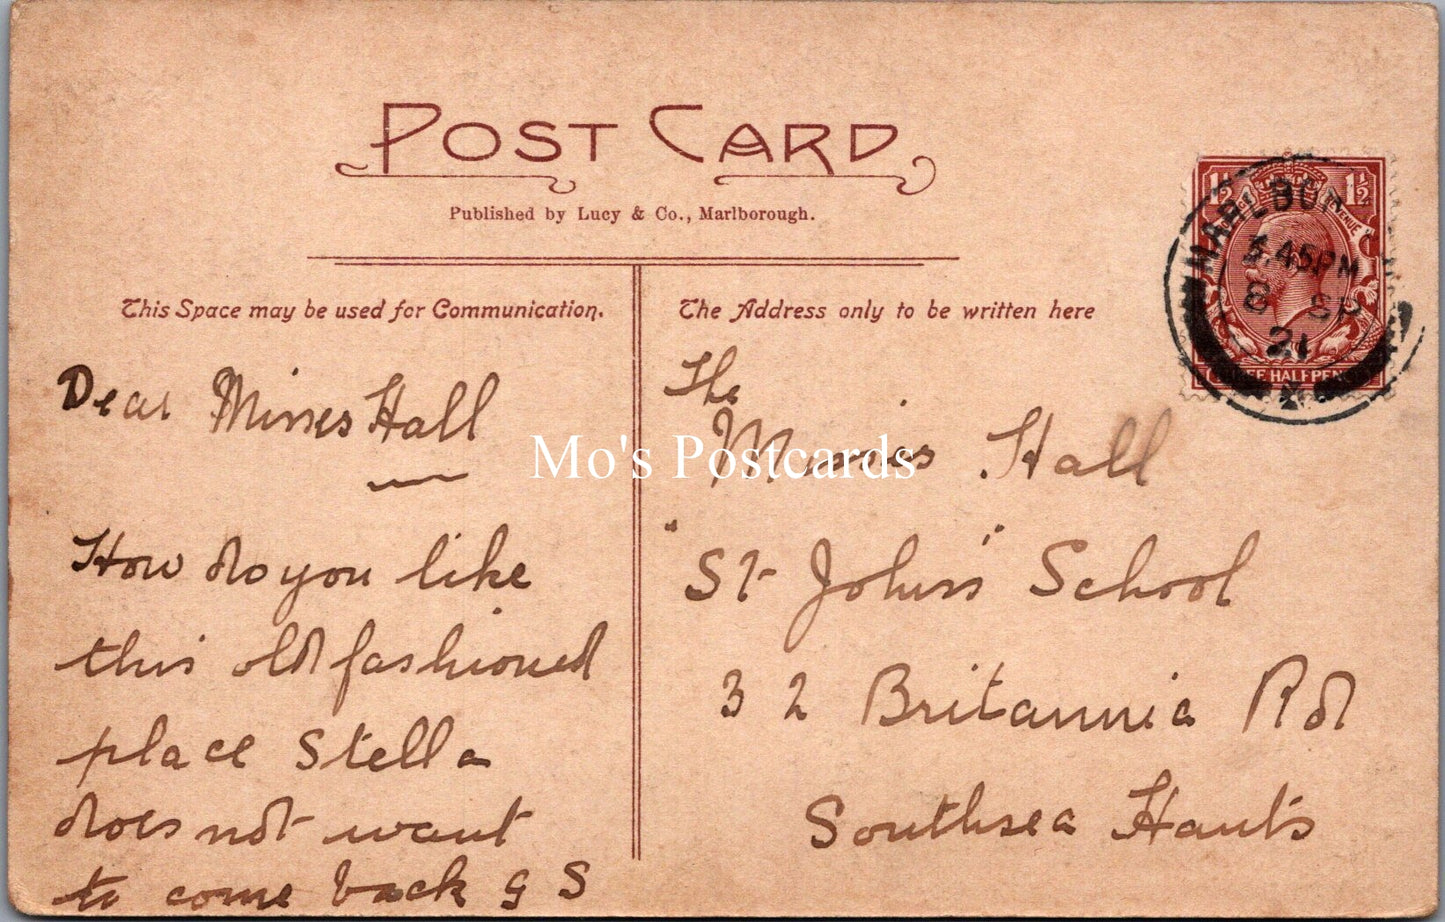 POST CARD
Published by Lucy & Co., Marlborough.
This Space may be used for Communication.
The Address only to be written here
Dear Misses Hall
How do you like
this old fashioned
place Stella
does not want
to come back G S
The
Misses Hall
"St Johns" School
32 Britannia Rd
Southsea Hants
1½ 1½
REVENUE
HALFPEN
MARLBOR
.45PM
8 SP
21
Mo's Postcards